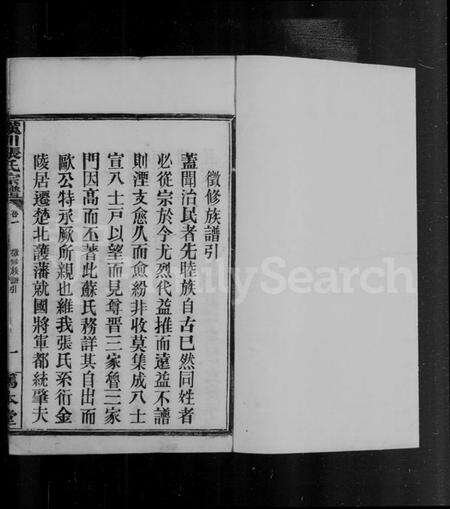 徵修族譜引
蓋聞治民者先睦族自古已然同姓者
必從宗於今尤烈代益推而遠益不譜
則湮支愈久而愈紛非收莫集成八士
宣八士戸以望而見尊晋三家魯三家
門因高而丕著此蘇氏務詳其自出而
歐公特承厥所親也維我張氏系衍金
陵居遷楚北護藩就國將軍都統肇夫
漢川張氏宗譜
卷一
徵修族譜引
一
FamilySearch